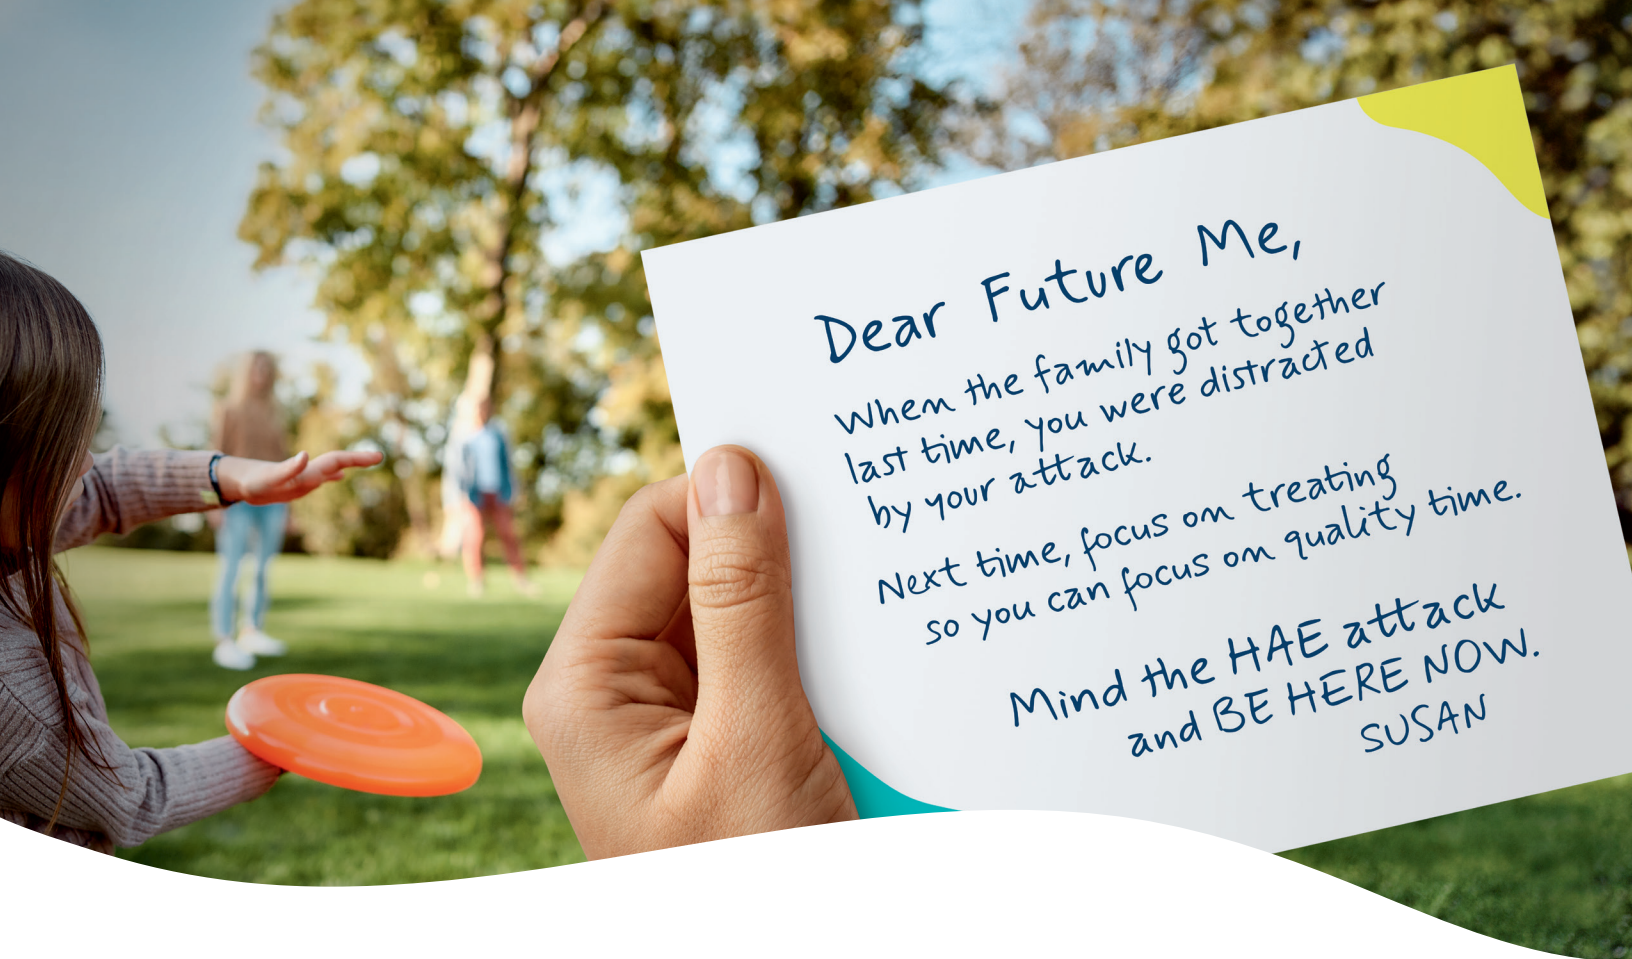 Dear Future Me,
When the family got together
last time, you were distracted
by your attack.
Next time, focus on treating
so you can focus on quality time.
Mind the HAE attack
and BE HERE NOW.
SUSAN